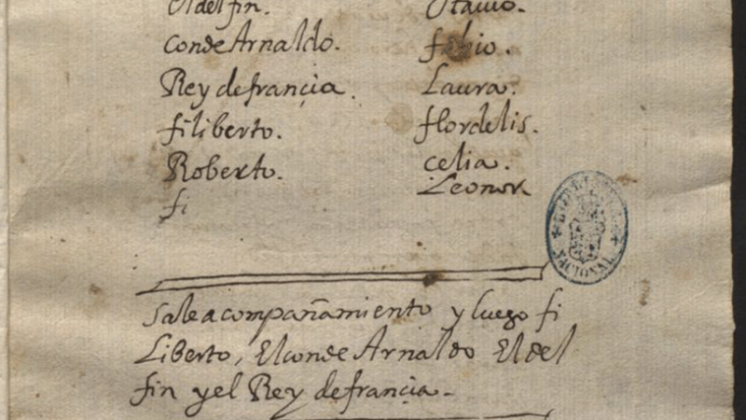 El delfin.
Conde Arnaldo.
Rey de francia.
filiberto.
Roberto.
fi
Otauio.
fabio.
Laura.
flordelis.
celia.
Leonor
Sale acompañamiento y luego fi
Liberto, El conde Arnaldo El del
fin y el Rey de francia.
NACIONAL